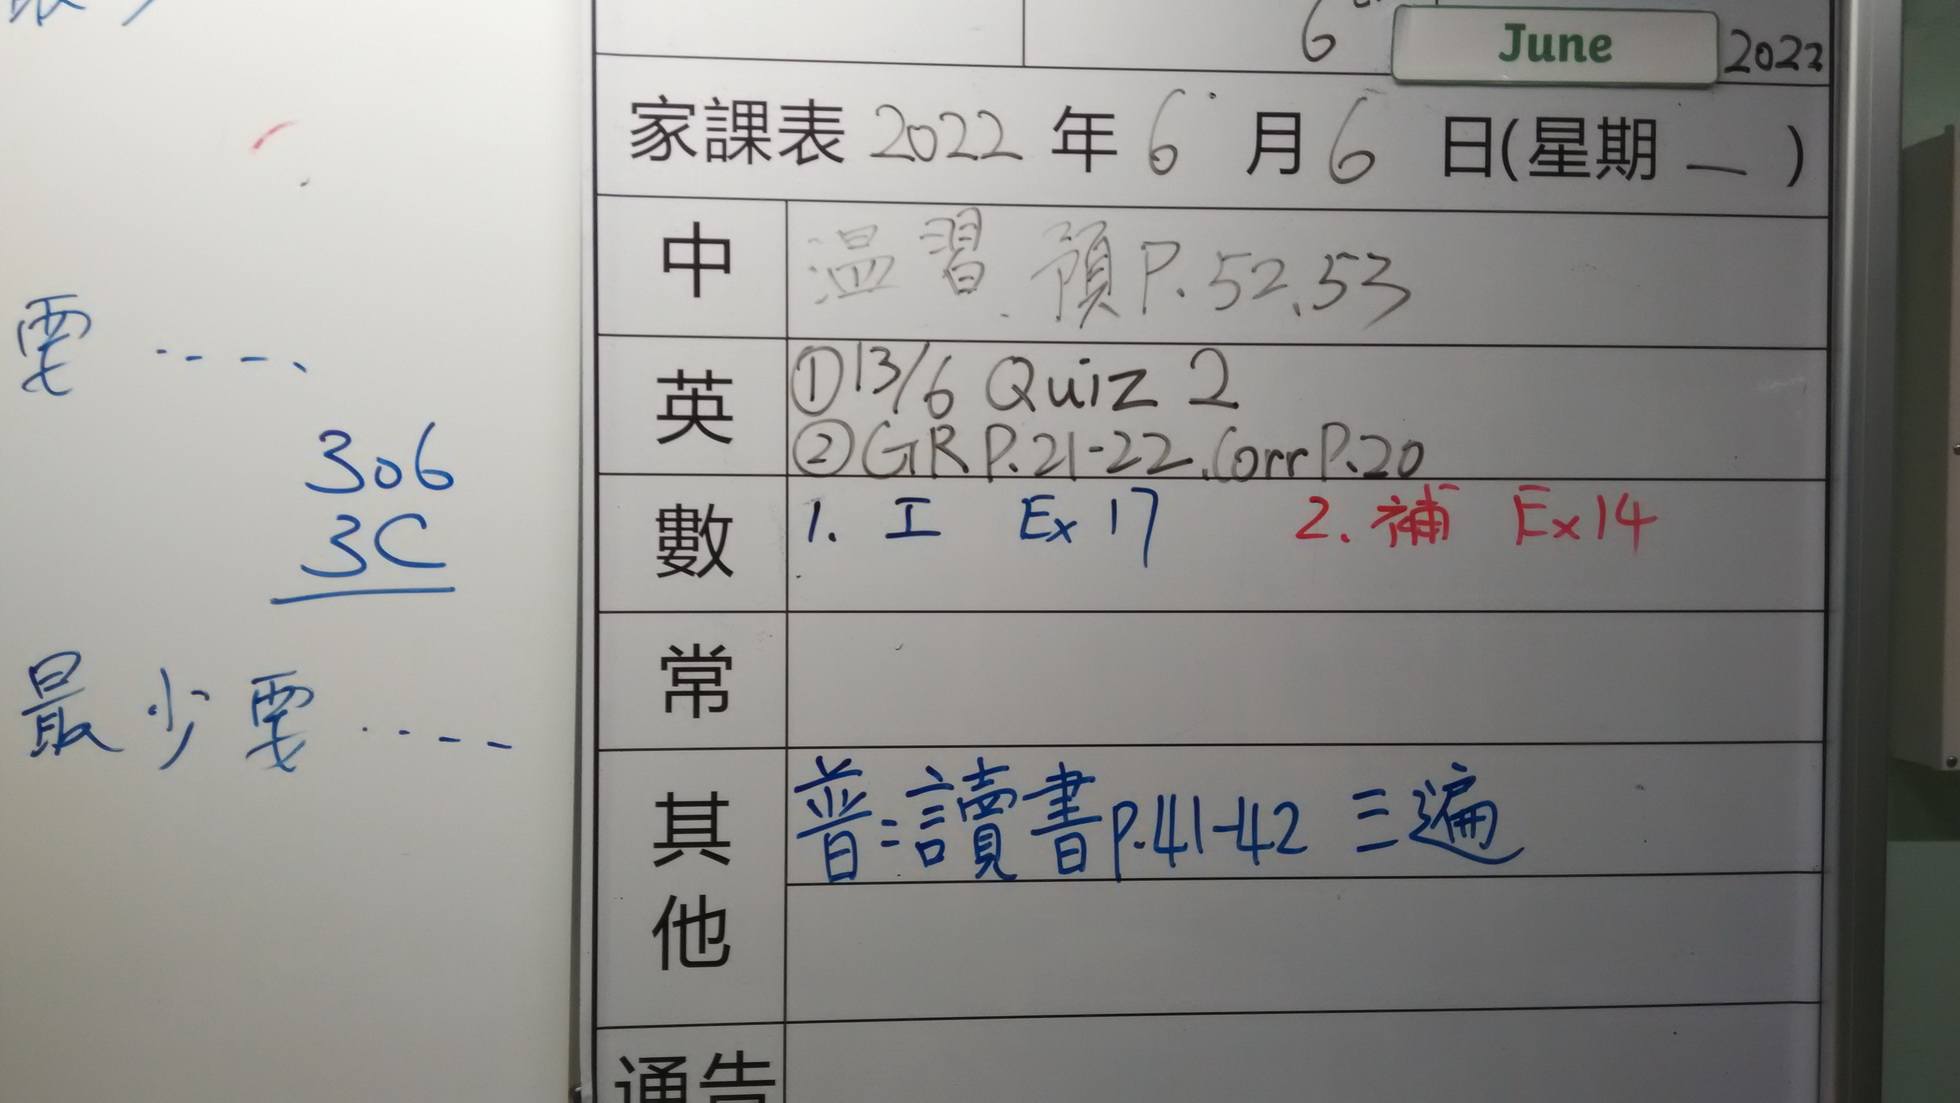 要 ....
306
3C
最少要 ....
6th June 2022
家課表 2022 年 6 月 6 日(星期 一 )
中 温習、預P.52,53
英 ①13/6 Quiz 2
②GR P.21-22, Corr P.20
數 1. 工 Ex 17 2. 補 Ex 14
常
其他 普:讀書p.41-42 三遍
通告